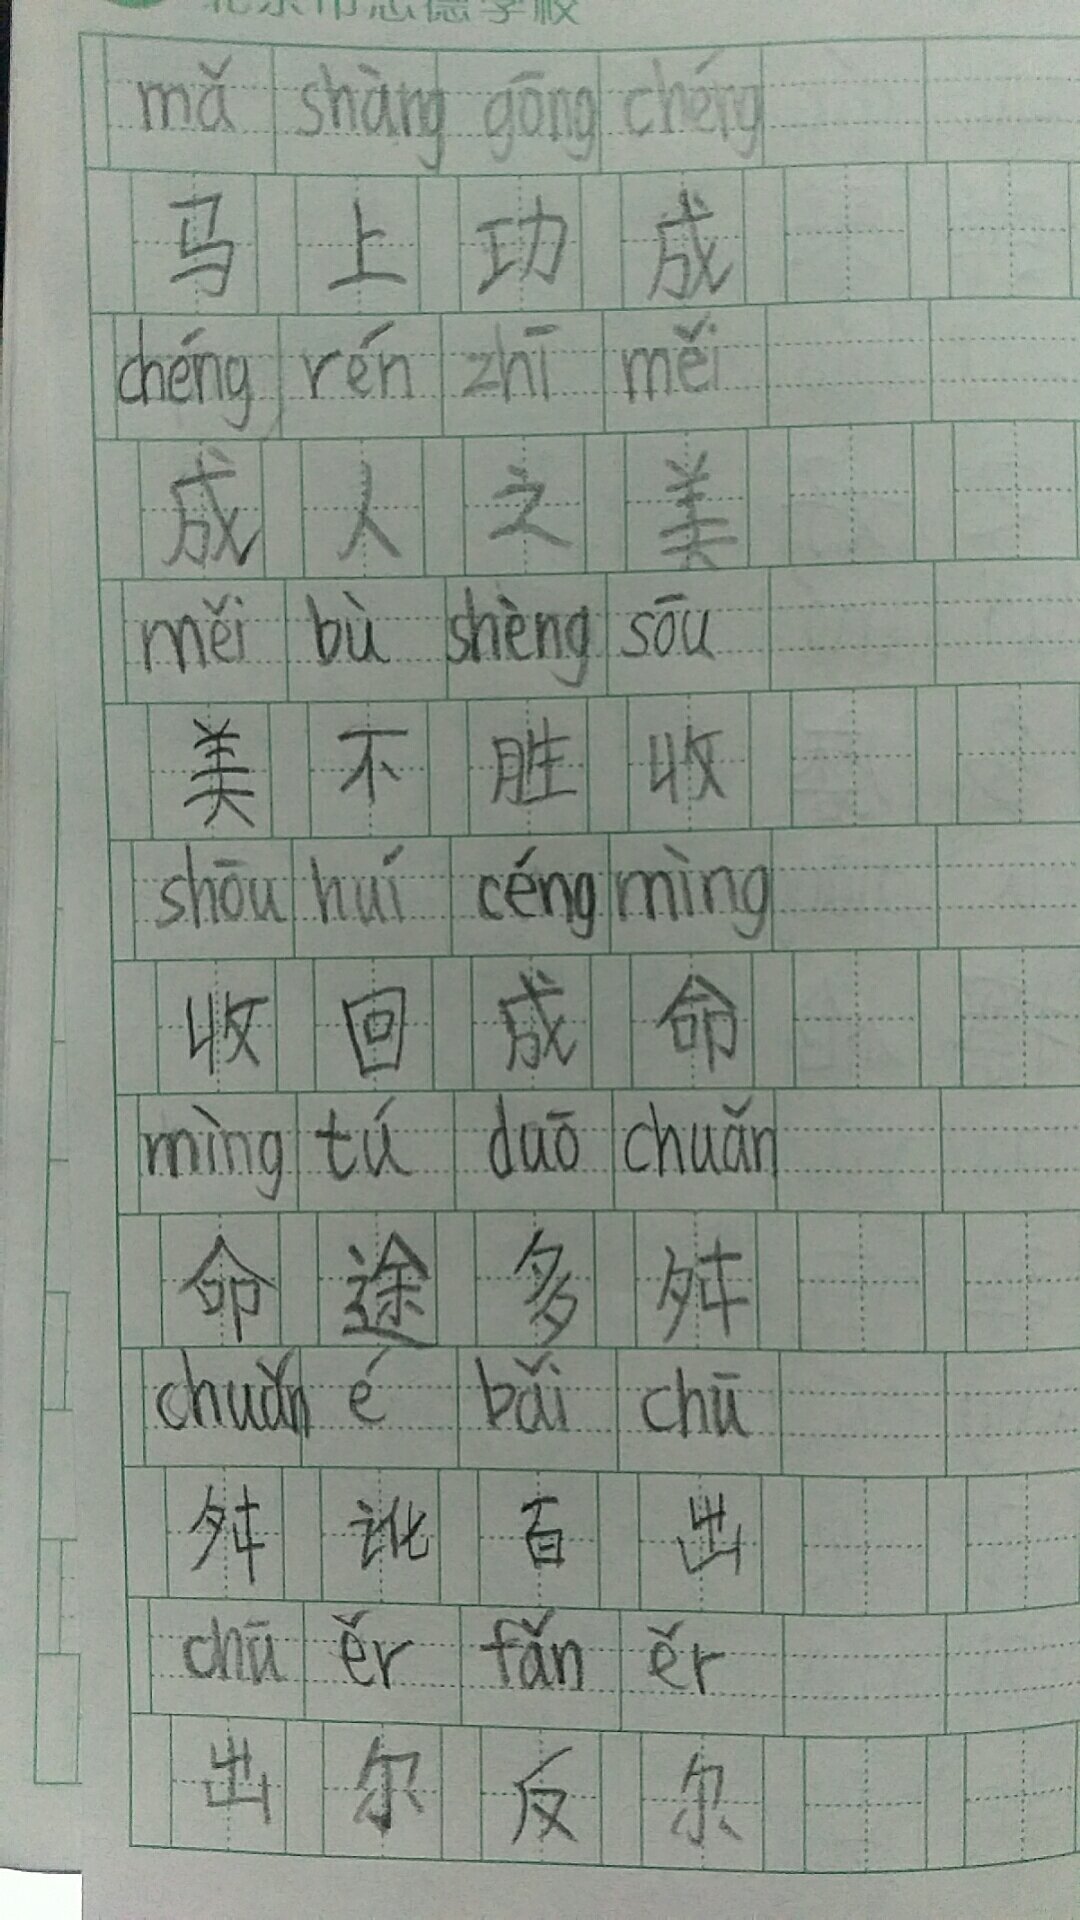 mǎ shàng gōng chéng
马上功成
chéng rén zhī měi
成人之美
měi bù shèng sōu
美不胜收
shōu huí céng mìng
收回成命
mìng tú duō chuǎn
命途多舛
chuǎn é bǎi chū
舛讹百出
chū ěr fǎn ěr
出尔反尔